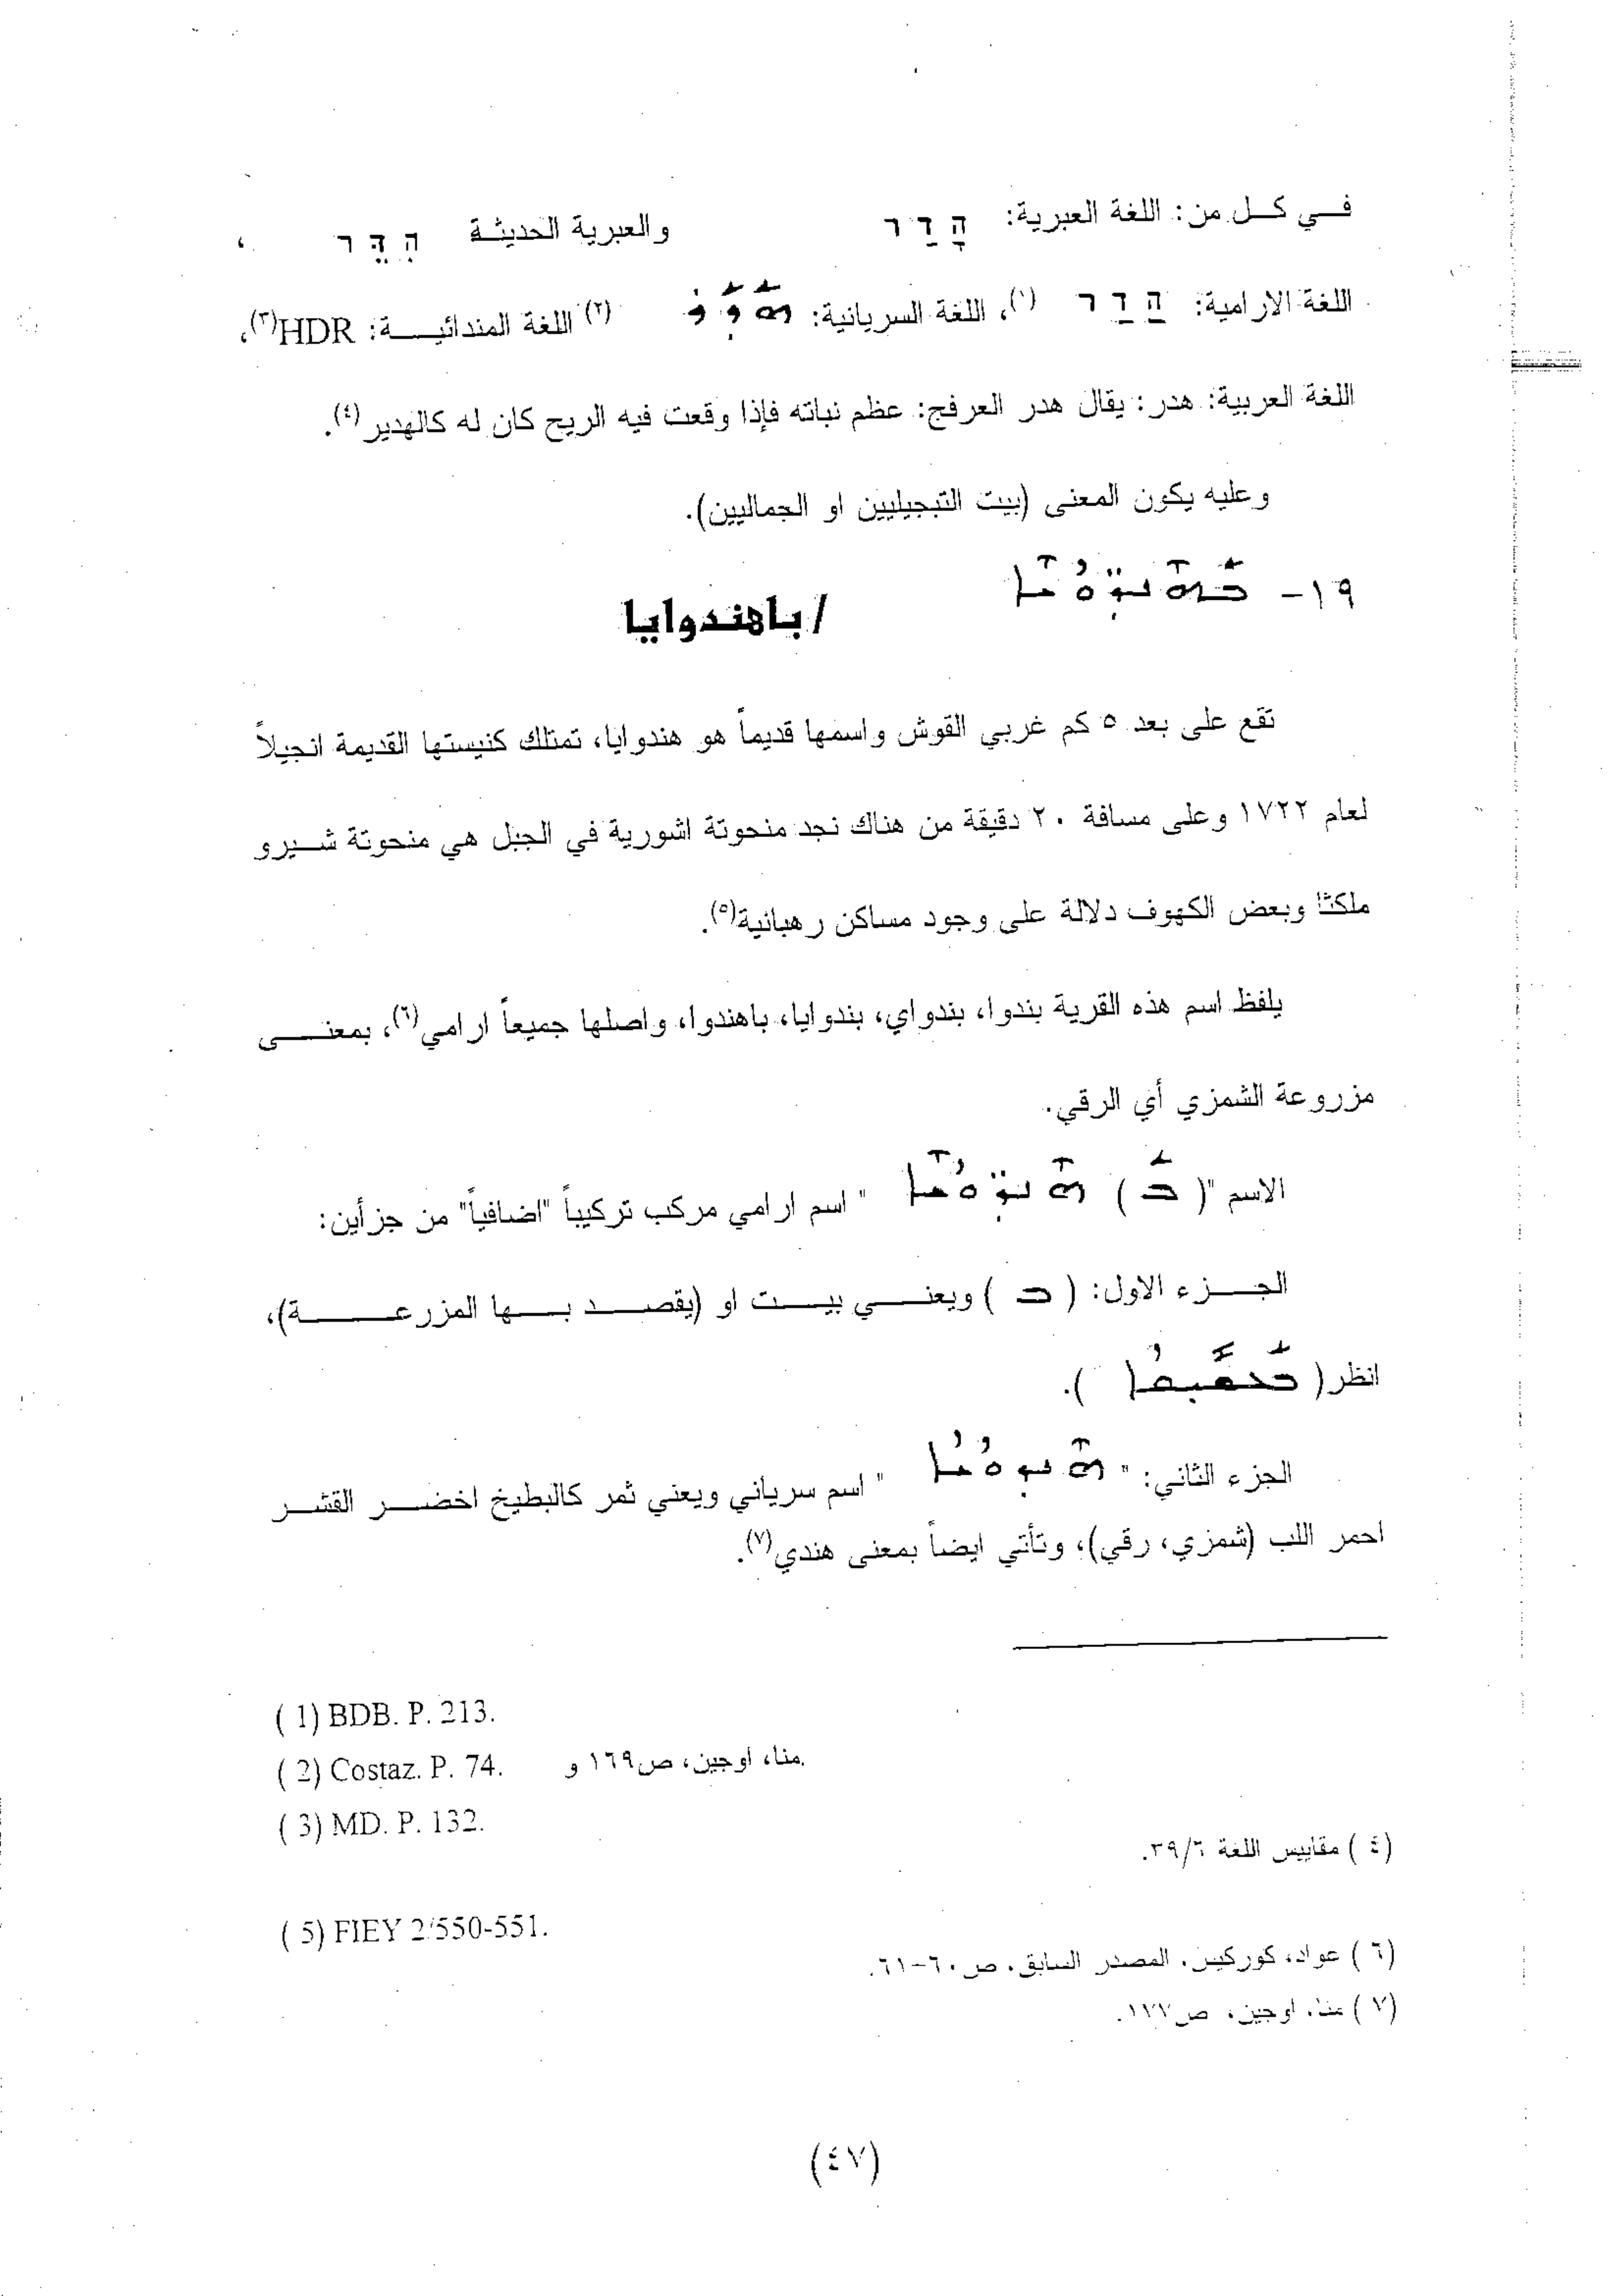 في كل من: اللغة العبرية: הָדַר والعبرية الحديثة הִדֵּר ،
اللغة الارامية: הַדַר (١)، اللغة السريانية: ܗܕܪ (٢) اللغة المندائية: HDR(٣)،
اللغة العربية: هدر: يقال هدر العرفج: عظم نباته فإذا وقعت فيه الريح كان له كالهدير(٤).
وعليه يكون المعنى (بيت التبجيليين او الجماليين).
١٩- ܒܗܢܕܘܝܐ
/باهندوايا
تقع على بعد ٥ كم غربي القوش واسمها قديماً هو هندوايا، تمتلك كنيستها القديمة انجيلاً
لعام ١٧٢٢ وعلى مسافة ٢٠ دقيقة من هناك نجد منحوتة اشورية في الجبل هي منحوتة شيرو
ملكثا وبعض الكهوف دلالة على وجود مساكن رهبانية(٥).
يلفظ اسم هذه القرية بندوا، بندواي، بندوايا، باهندوا، واصلها جميعاً ارامي(٦)، بمعنى
مزروعة الشمزي أي الرقي.
الاسم "(ܒ) ܗܢܕܘܝܐ " اسم ارامي مركب تركيباً "اضافياً" من جزأين:
الجزء الاول: (ܒ) ويعني بيت او (يقصد بها المزرعة)،
انظر( ).
الجزء الثاني: "ܗܢܕܘܝܐ " اسم سرياني ويعني ثمر كالبطيخ اخضر القشر
احمر اللب (شمزي، رقي)، وتأتي ايضاً بمعنى هندي(٧).
( 1) BDB. P. 213.
( 2) Costaz. P. 74. منا، اوجين، ص١٦٩ و.
( 3) MD. P. 132.
(٤ ) مقاييس اللغة ٣٩/٦.
( 5) FIEY 2/550-551.
(٦ ) عواد، كوركيس. المصدر السابق. ص٦٠-٦١.
(٧ ) منا. اوجين، ص١٧٧.
(٤٧)